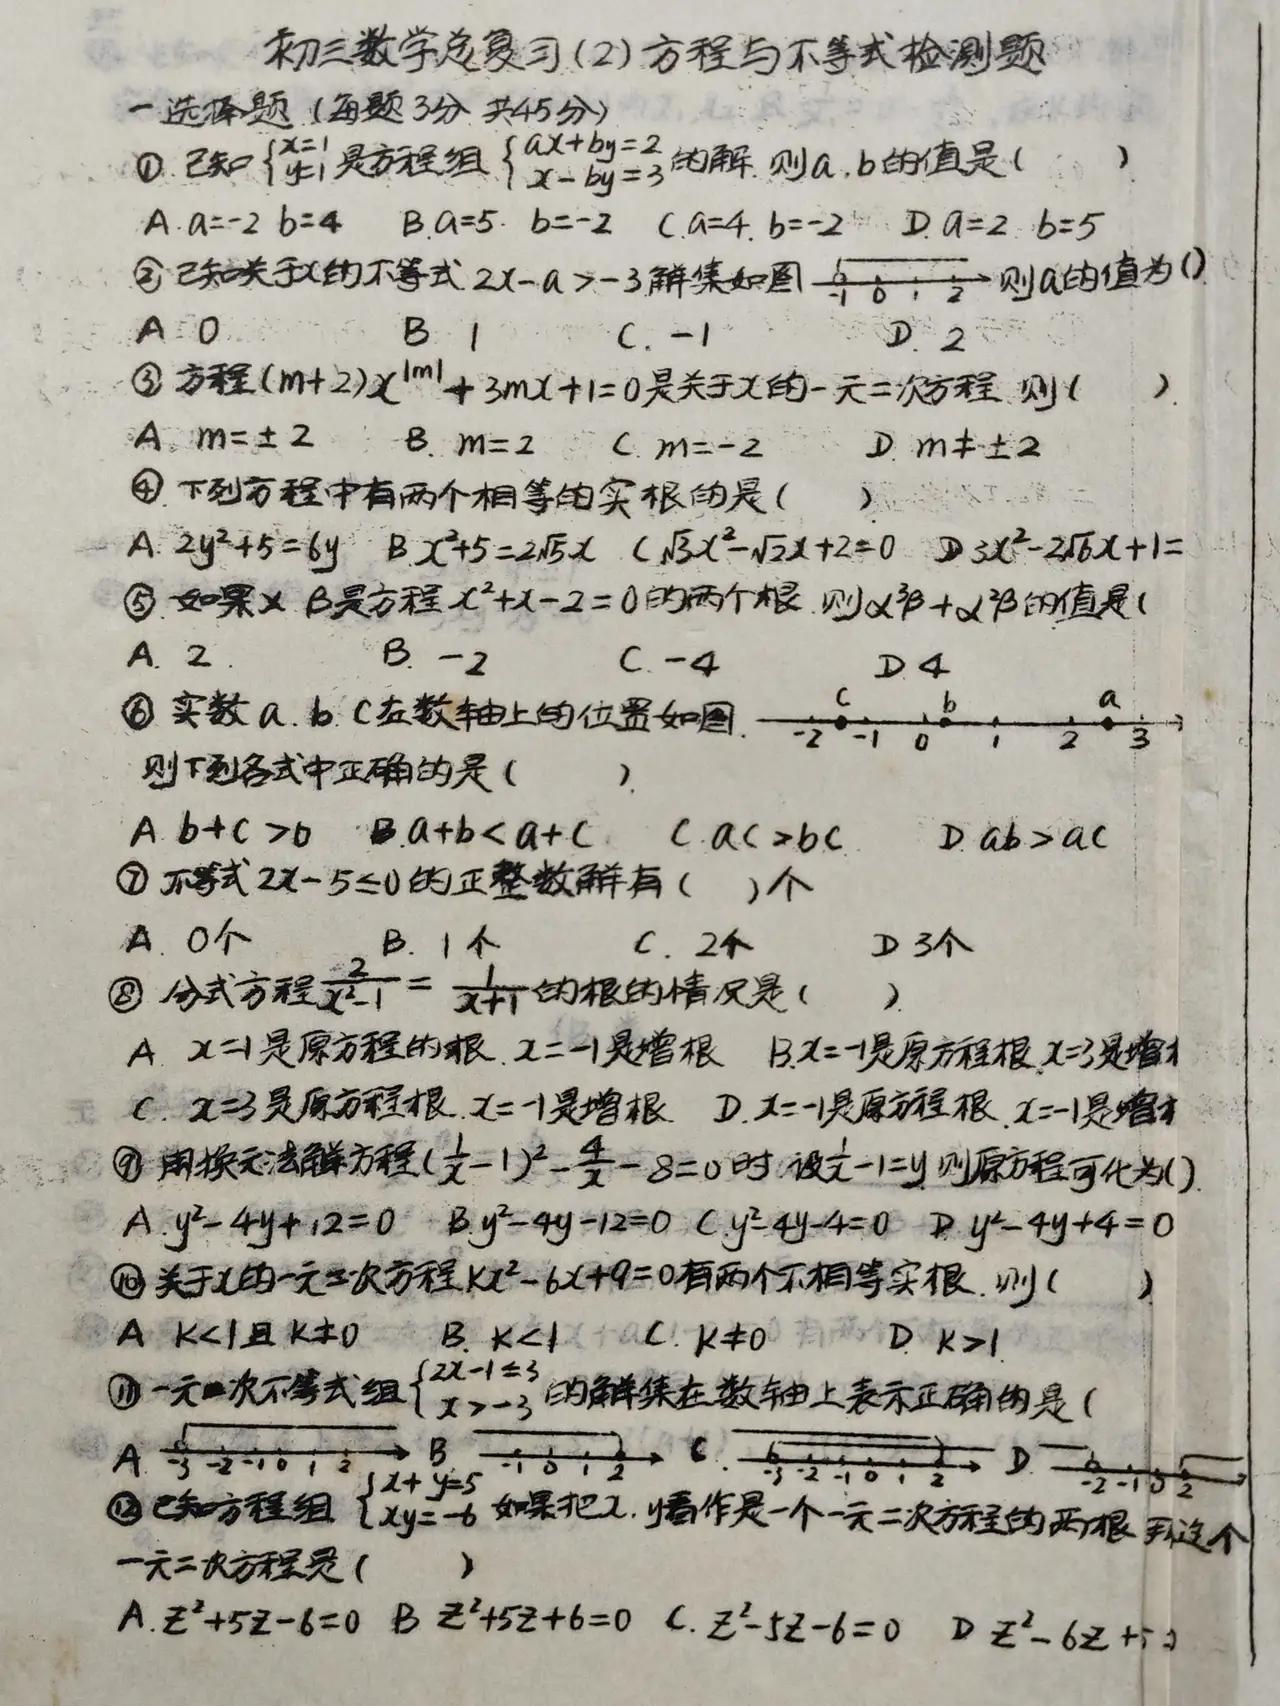 初三数学总复习(2)方程与不等式检测题
一 选择题 (每题3分 共45分)
① 已知{x=1 y=1 是方程组{ax+by=2 x-by=3 的解.则a.b的值是( )
A.a=-2 b=4 B.a=5. b=-2 C.a=4. b=-2 D.a=2. b=5
② 已知关于x的不等式 2x-a>-3解集如图 -1 0 1 2 则a的值为()
A 0 B 1 C. -1 D. 2
③ 方程(m+2)x^|m|+3mx+1=0是关于x的一元二次方程 则( )
A m=±2 B. m=2 C. m=-2 D. m≠±2
④. 下列方程中有两个相等的实根的是( )
A. 2y²+5=6y B.x²+5=2√5x C √3x²-√2x+2=0 D 3x²-2√6x+1=
⑤. 如果α β是方程x²+x-2=0的两个根.则α³β+α²β的值是(
A. 2. B. -2 C. -4 D 4
⑥ 实数a.b.c在数轴上的位置如图. c b a -2 -1 0 1 2 3
则下列各式中正确的是( )
A b+c>0 B.a+b<a+c C.ac>bc D.ab>ac
⑦ 不等式2x-5≤0的正整数解有( )个
A. 0个 B. 1个 C. 2个 D 3个
⑧ 分式方程 2/(x²-1) = 1/(x+1) 的根的情况是( )
A x=1是原方程的根.x=-1是增根 B.x=-1是原方程根.x=3是增
C. x=3是原方程根.x=-1是增根 D.x=-1是原方程根.x=-1是增
⑨ 用换元法解方程(1/x-1)²-4/x-8=0时.设1/x-1=y则原方程可化为()
A.y²-4y+12=0 B.y²-4y-12=0 C.y²-4y-4=0 D.y²-4y+4=0
⑩关于x的一元二次方程kx²-6x+9=0有两个不相等实根.则( )
A k<1且k≠0 B. k<1 C. k≠0 D. k>1
⑪ 一元一次不等式组{2x-1≤3 x>-3 的解集在数轴上表示正确的是(
A -3 -2 -1 0 1 2 B. -1 0 1 2 C. -3 -2 -1 0 1 2 D. -2 -1 0 2
⑫ 已知方程组{x+y=5 xy=-6 如果把x.y看作是一个一元二次方程的两根 这个
一元二次方程是( )
A.z²+5z-6=0 B z²+5z+6=0 C. z²-5z-6=0 D z²-6z+5